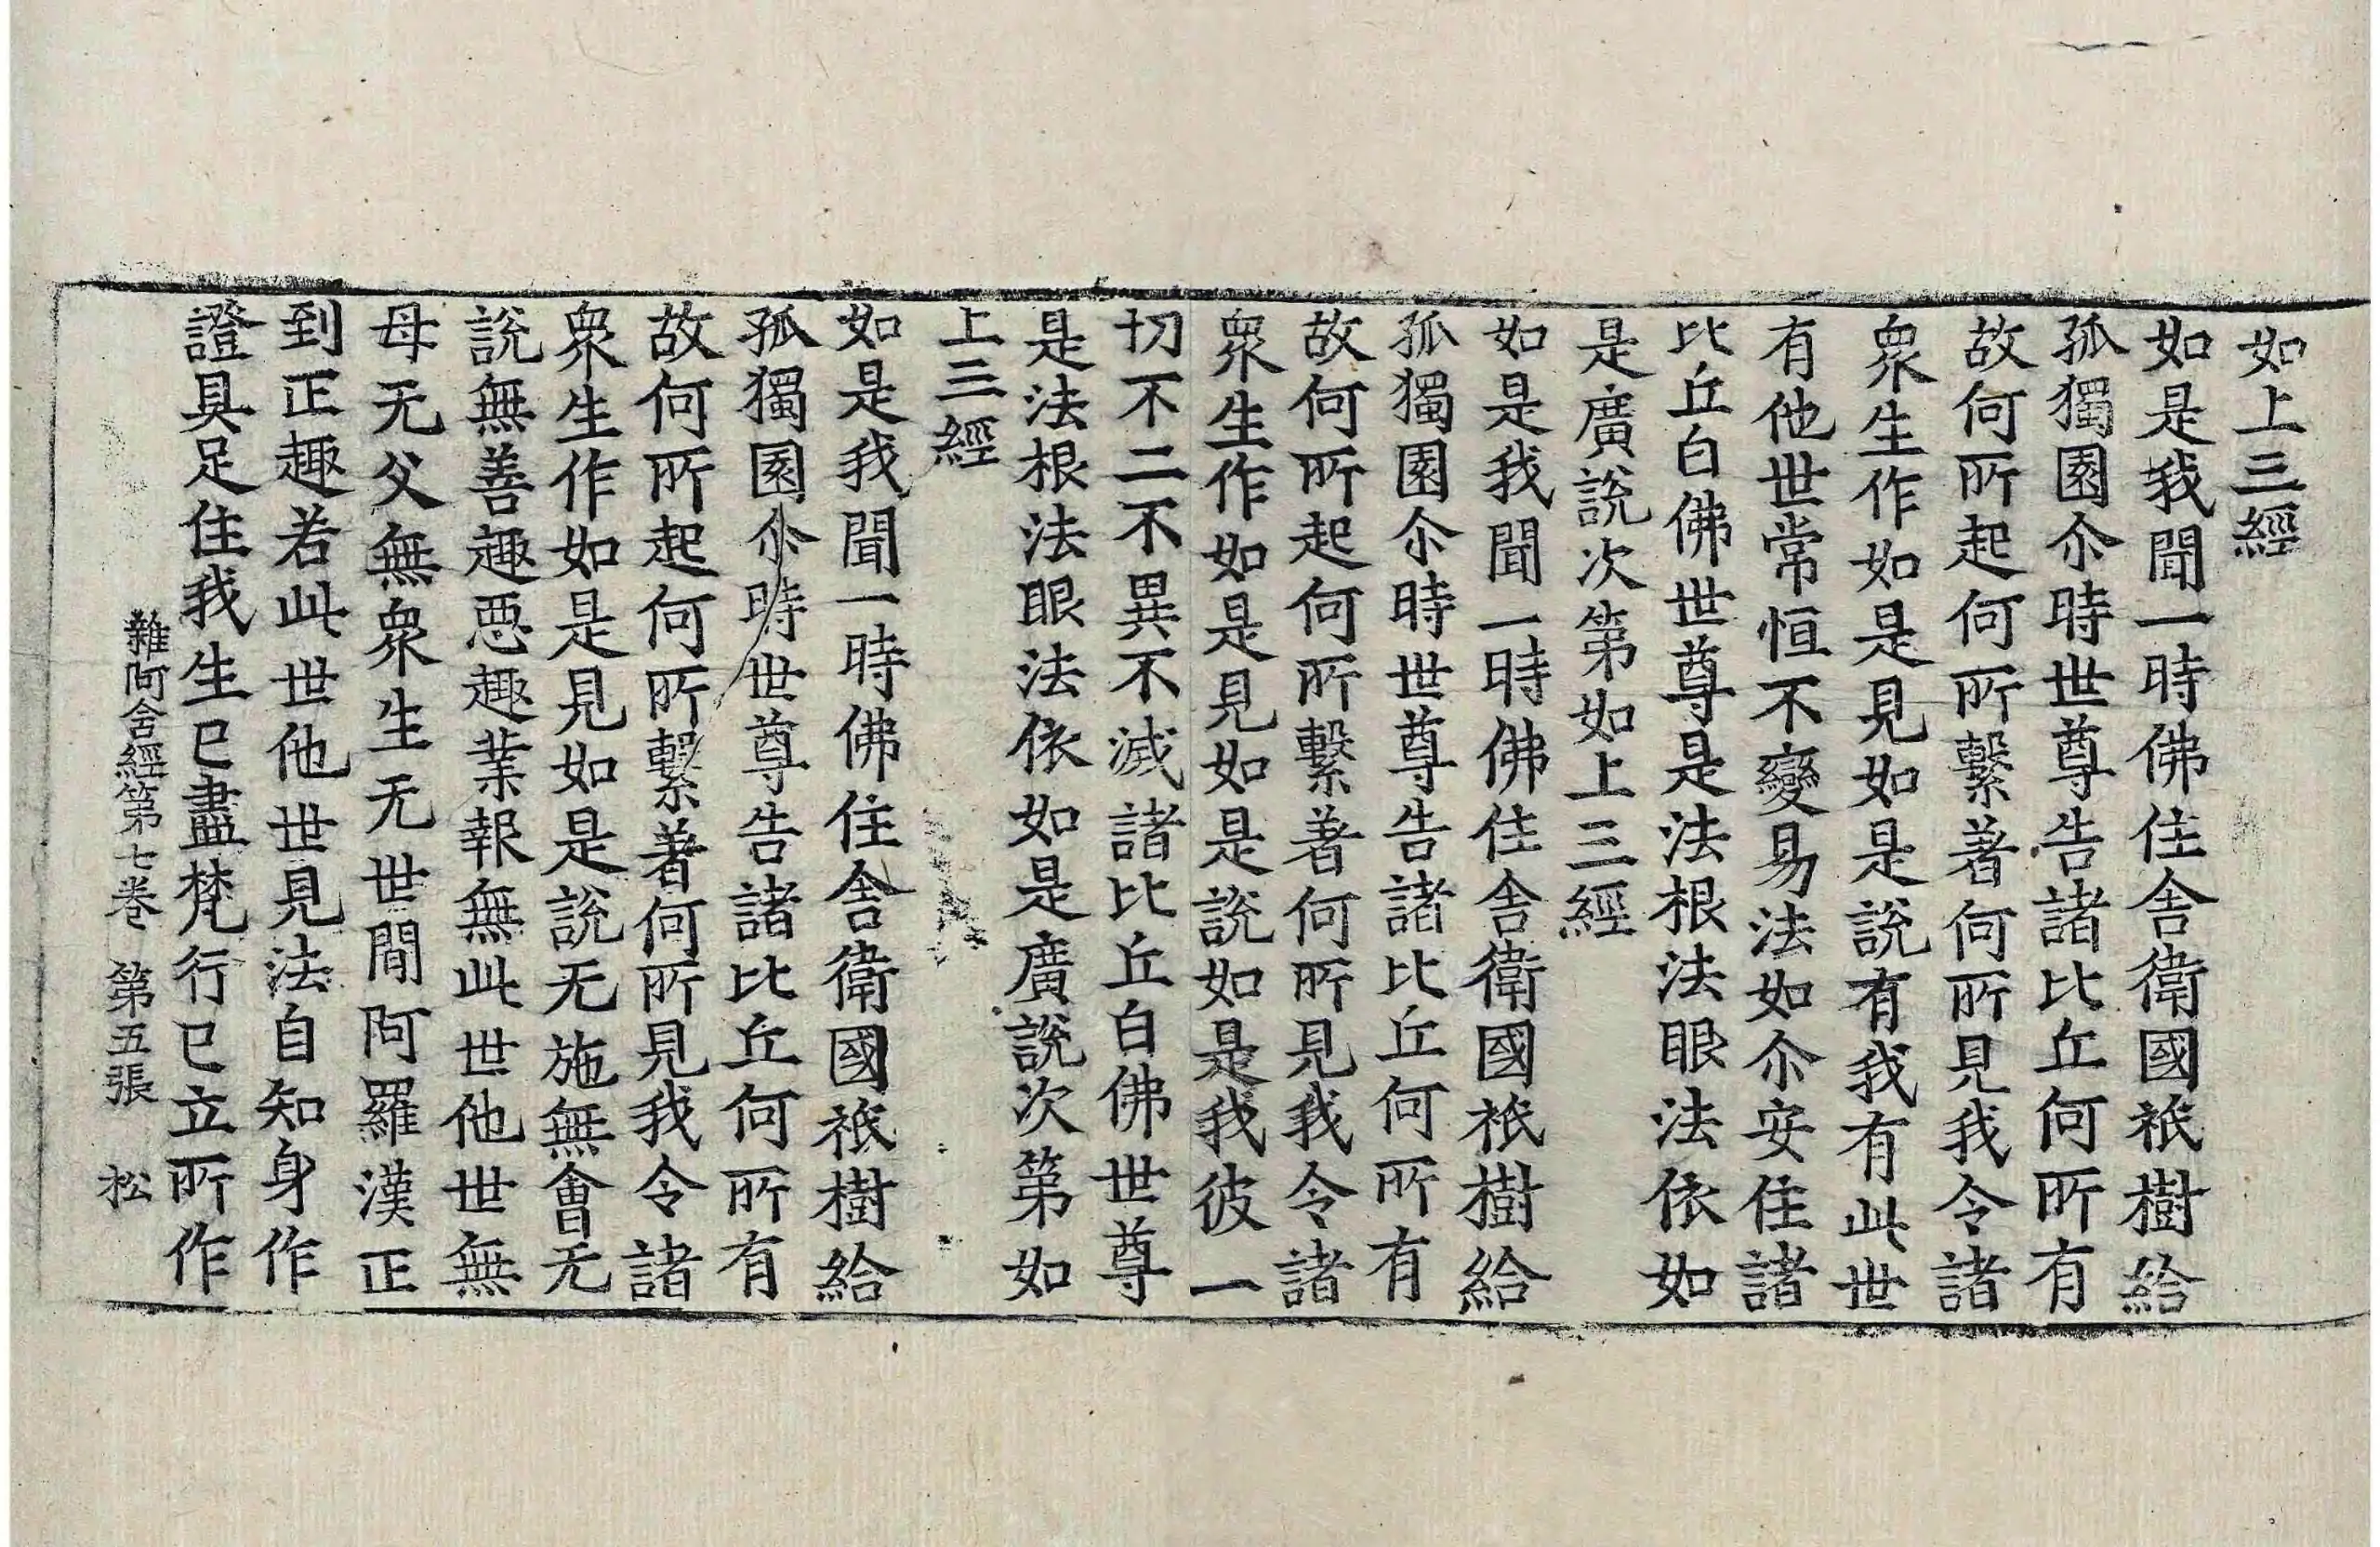 如上三經
如是我聞一時佛住舍衛國祇樹給
孤獨園尒時世尊告諸比丘何所有
故何所起何所繫著何所見我令諸
衆生作如是見如是說有我有此世
有他世常恒不變易法如尒安住諸
比丘白佛世尊是法根法眼法依如
是廣說次第如上三經
如是我聞一時佛住舍衛國祇樹給
孤獨園尒時世尊告諸比丘何所有
故何所起何所繫著何所見我令諸
衆生作如是見如是說如是我彼一
切不二不異不滅諸比丘白佛世尊
是法根法眼法依如是廣說次第如
上三經
如是我聞一時佛住舍衛國祇樹給
孤獨園尒時世尊告諸比丘何所有
故何所起何所繫著何所見我令諸
衆生作如是見如是說无施無會无
說無善趣惡趣業報無此世他世無
母无父無衆生无世間阿羅漢正
到正趣若此世他世見法自知身作
證具足住我生已盡梵行已立所作
雜阿含經第七卷　第五張　松